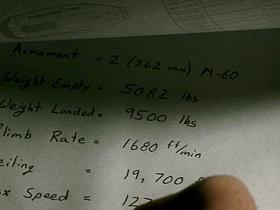 Armament = 2 (7.62 mm) M-60
Weight Empty = 5082 lbs
Weight Loaded = 9500 lbs
limb Rate = 1680 ft/min
eiling = 19,700
x Speed = 12